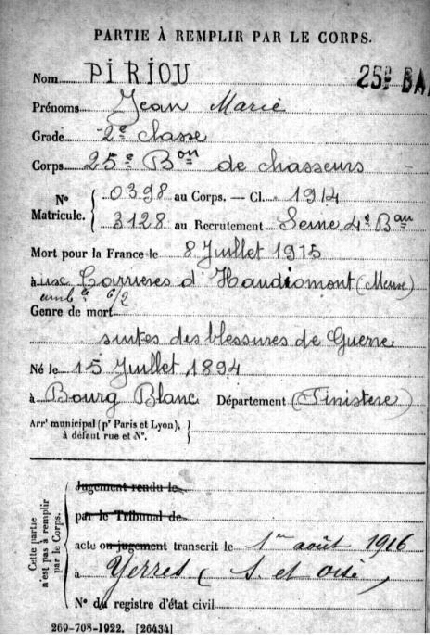 PARTIE À REMPLIR PAR LE CORPS.
25e BA
Nom PIRIOU
Prénoms Jean Marie
Grade 2e classe
Corps 25e Bon de chasseurs
No Matricule. { 0398 au Corps. — Cl. 1914
3128 au Recrutement Seine 4e Bau
Mort pour la France le 8 Juillet 1915
à Carrières d'Haudiomont (Meuse)
amb ce 6/2
Genre de mort
suites des blessures de Guerre
Né le 15 Juillet 1894
à Bourg Blanc Département (Finistere)
Arrt municipal (pr Paris et Lyon), à défaut rue et No.
Cette partie n'est pas à remplir par le Corps.
Jugement rendu le
par le Tribunal de
acte ou jugement transcrit le 1er août 1916
à Yerres (S. et oise)
No du registre d'état civil
269-708-1922. [26434]